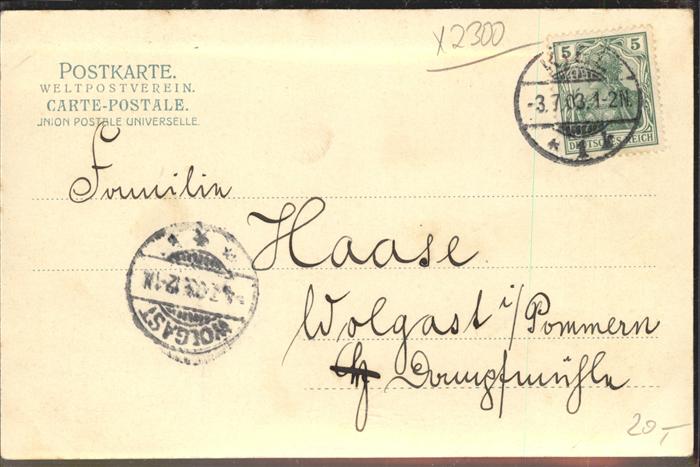 x2300
POSTKARTE.
WELTPOSTVEREIN.
CARTE-POSTALE.
UNION POSTALE UNIVERSELLE.
5 5
DEUTSCHES REICH
KIEL
-3.7.03.1-2N.
* 1 k
Familie
Haase
Wolgast i/Pommern
Dampfmühle
WOLGAST
7.03.12-1N
20,-